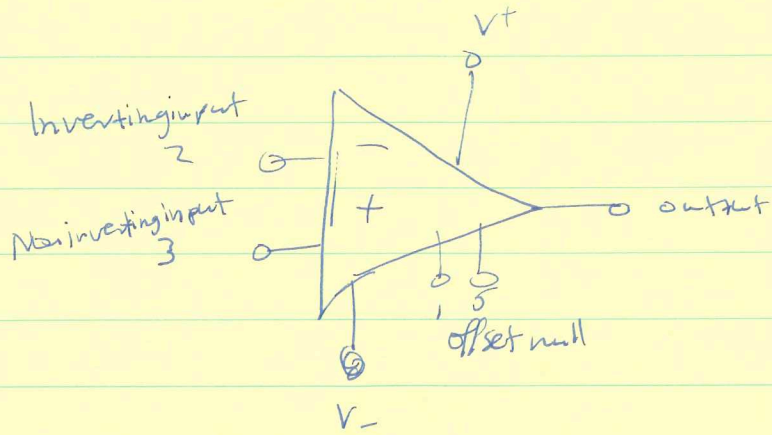 V+
Inverting input
2
−
Noninverting input
3
+
output
1 5
offset null
V-